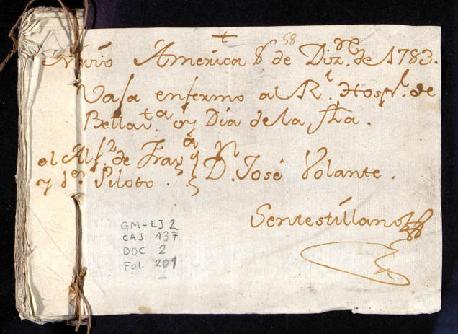 +
Navío America 8 de Diz.re de 1783.
58
Vasa enfermo al R.l Hosp.l de
Bella v.ta oy Dia de la fha.
el Alf.z de Frag.ta y
y 1.er Piloto D.n José Volante.
Sentestillano
GM-EJ 2
CAJ 137
DOC 2
Fol. 201